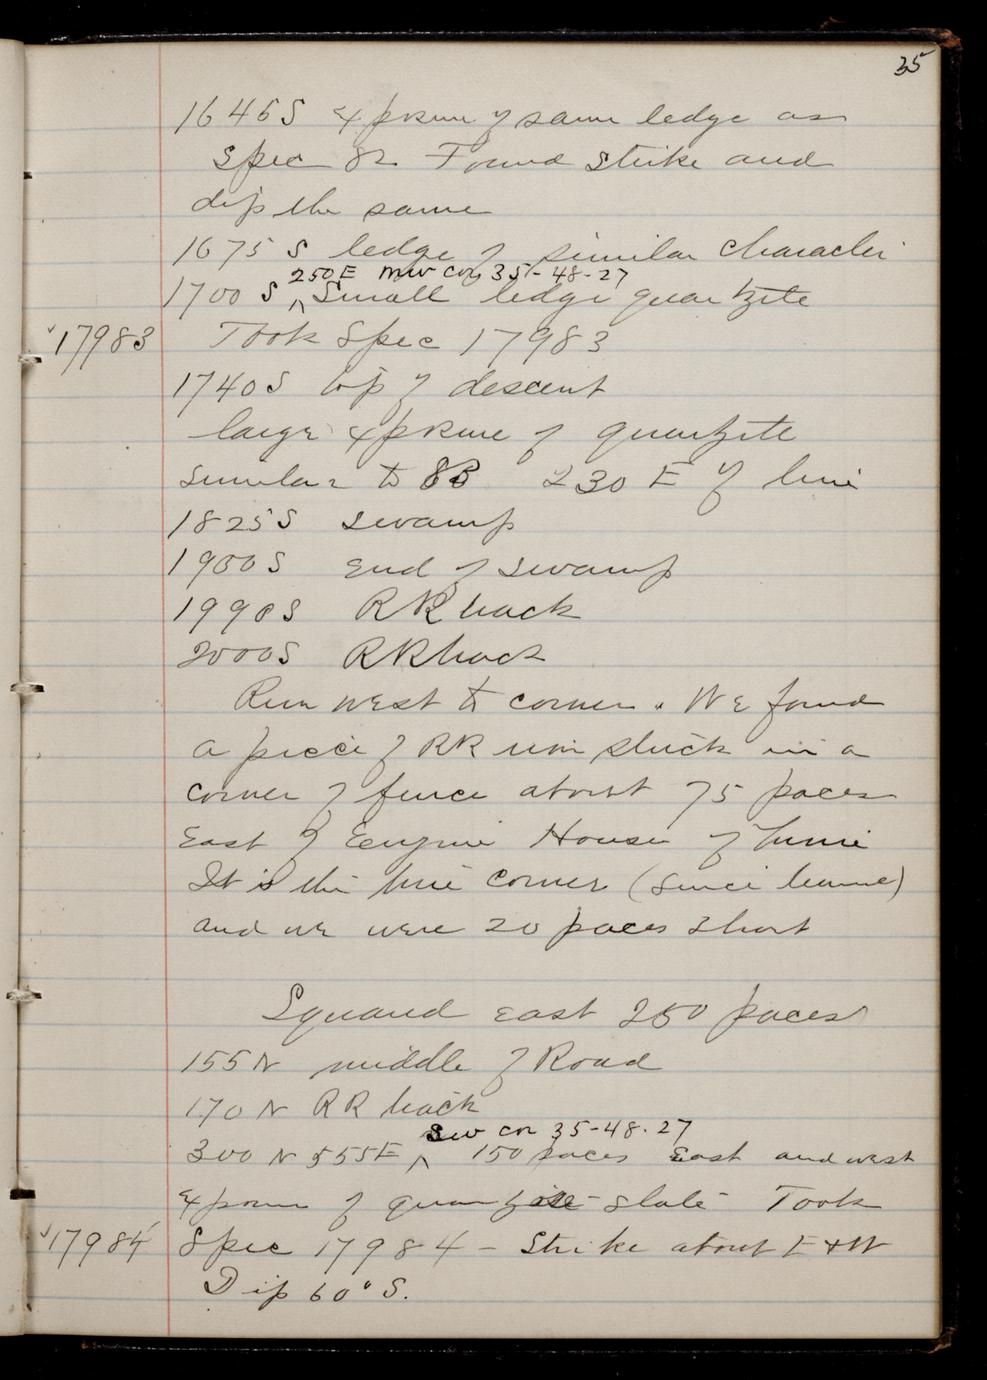 35
1645 S Exposure of same ledge as
Spec 82 Found strike and
dip the same
1675 S ledge of similar character
250 E NW cor 35-48-27
1700 S ^ Small ledge quartzite
17983 Took Spec 17983
1740 S top of descent
large exposure of quartzite
similar to 83 230 E of line
1825 S swamp
1900 S End of swamp
1990 S RR track
2000 S RR track
Run west to corner. We found
a piece of RR iron stuck in a
corner of fence about 75 paces
East of Engine House of mine
It is the true corner (since learned)
and we were 20 paces short
Squared east 250 paces
155 N middle of Road
170 N RR track
SW cor 35-48-27
300 N 555 E ^ 150 paces East and west
Exposure of quartzite-slate Took
17984 Spec 17984 - Strike about E & W
Dip 60° S.